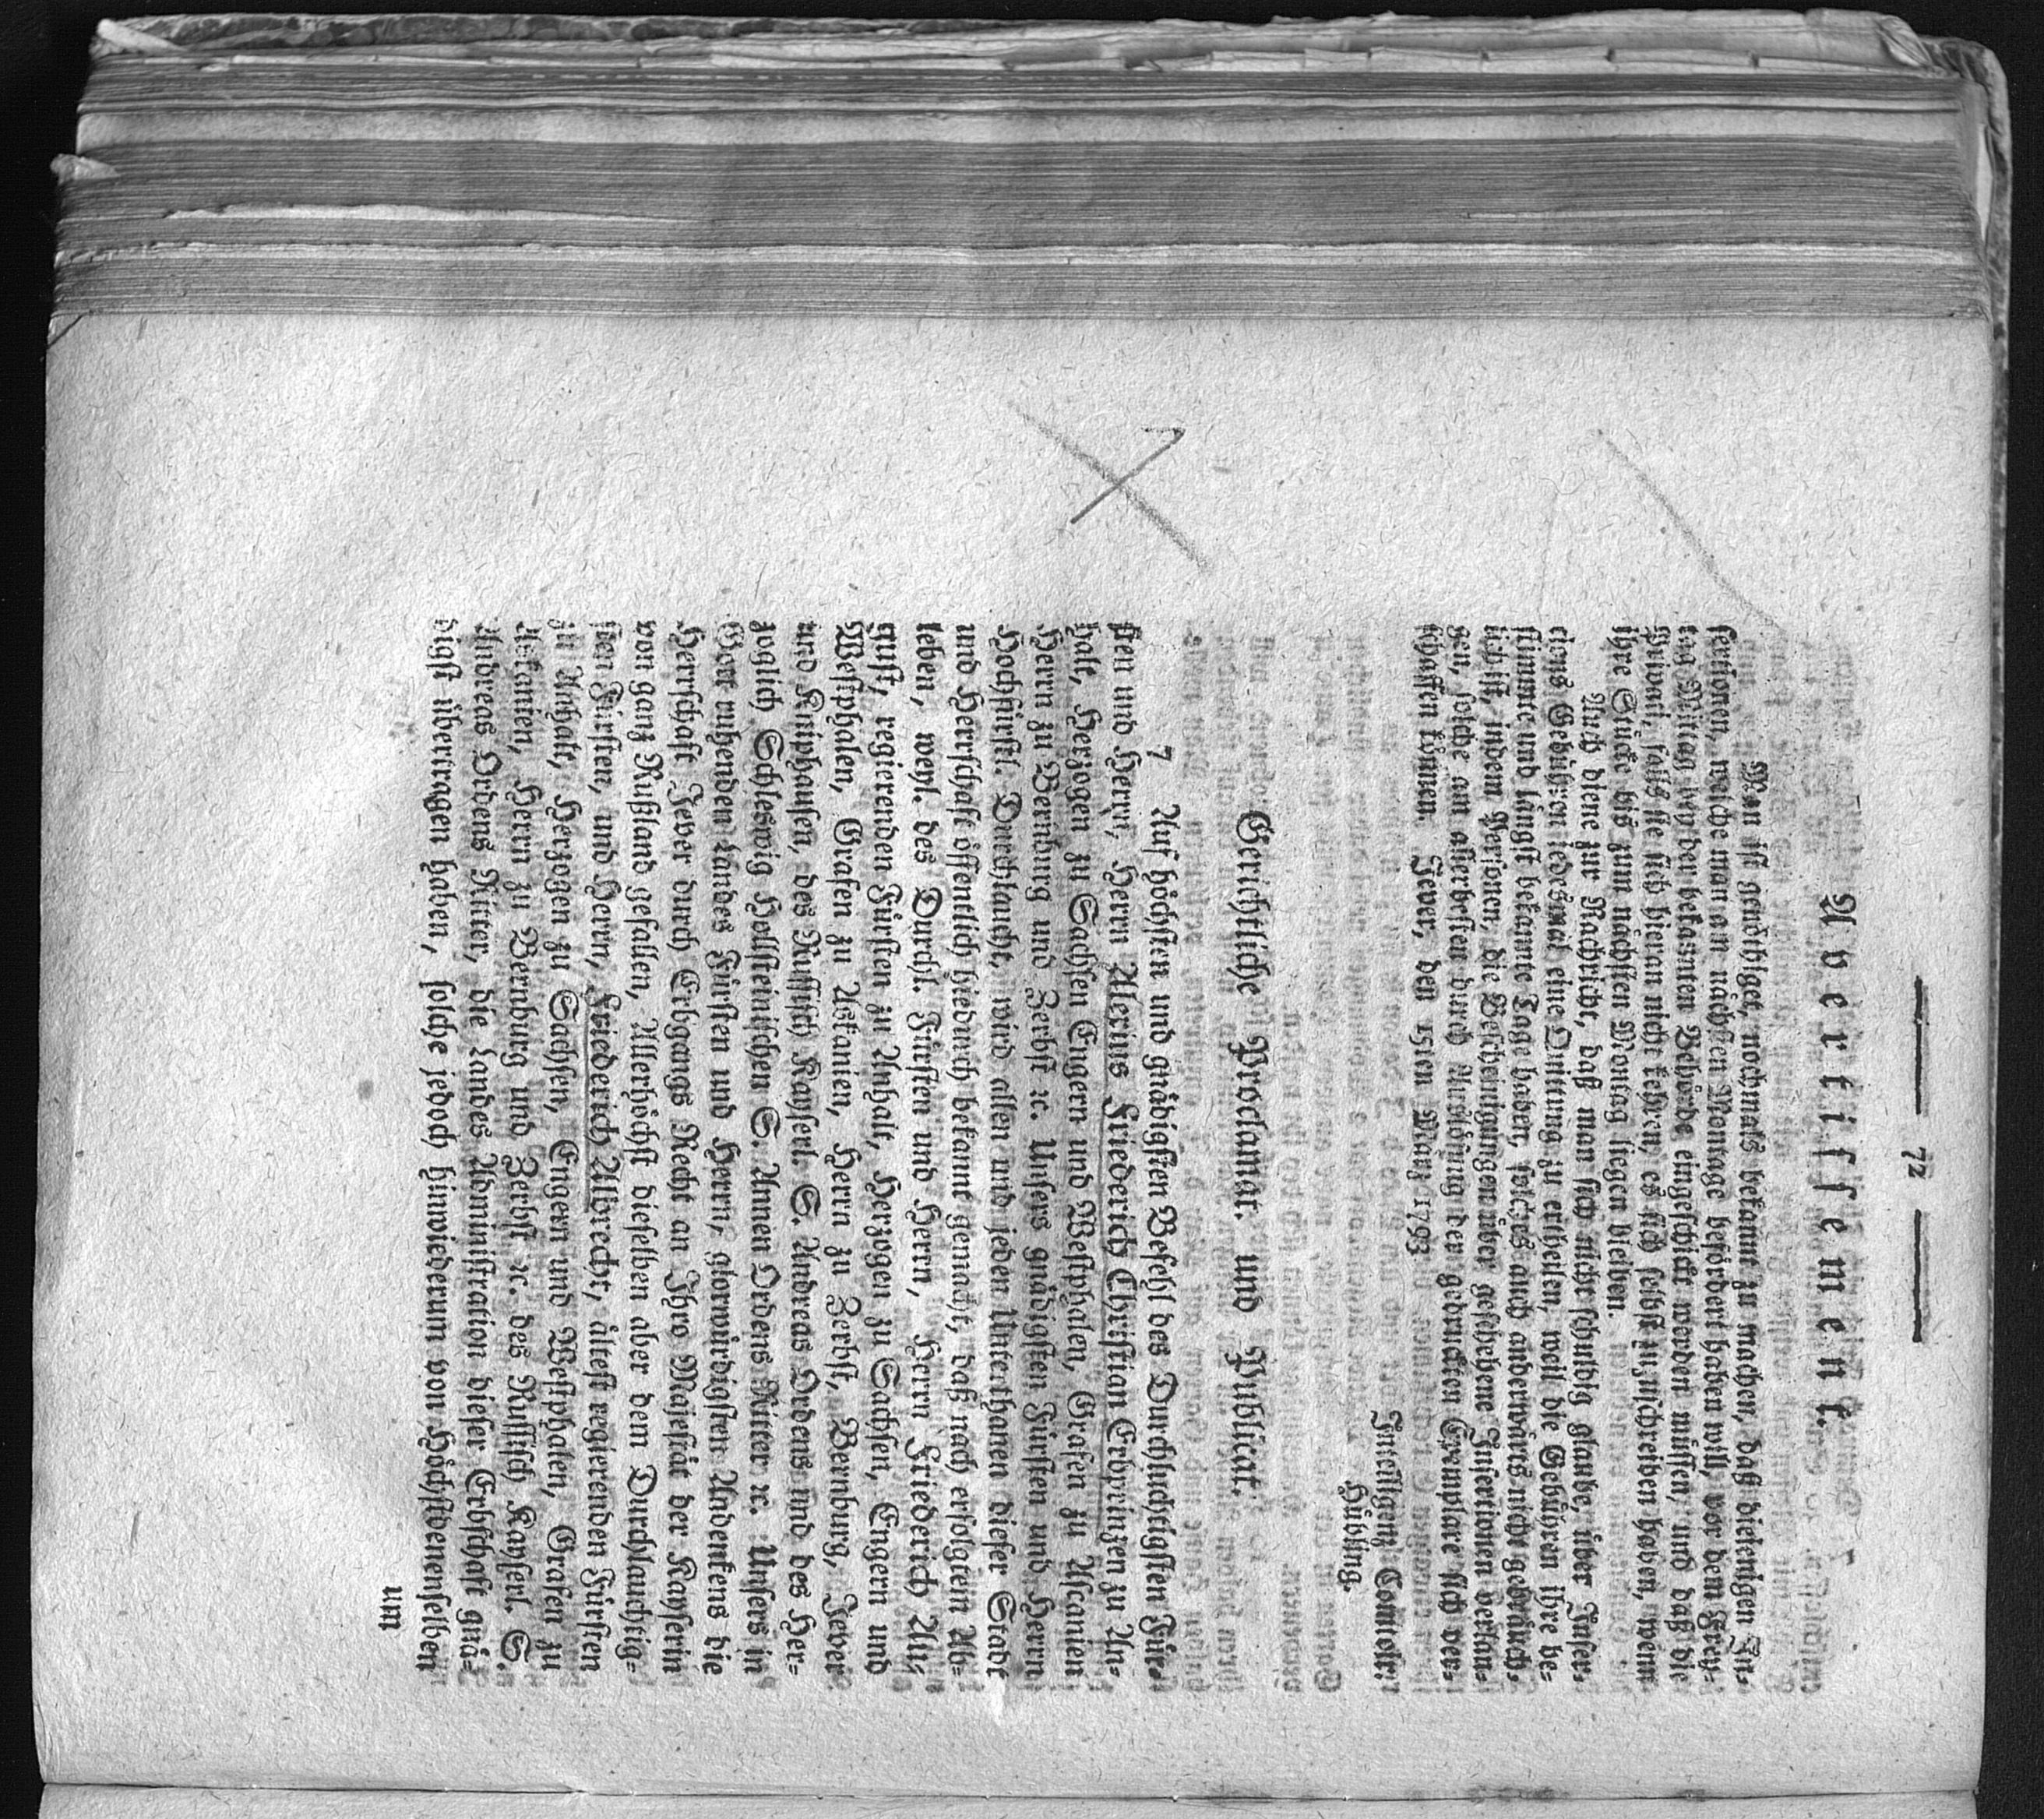 — 72 —
Avertissement.
Man ist genöthiget, nochmals bekannt zu machen, daß diejenigen In-
sertionen, welche man am nächsten Montage befördert haben will, vor dem Frey-
tag Mittag bey der bekannten Behörde eingeschickt werden müssen, und daß die
Privati, falls sie sich hieran nicht kehren, es sich selbst zuzuschreiben haben, wenn
ihre Stücke bis zum nächsten Montag liegen bleiben.
Auch dient zur Nachricht, daß man sich nicht schuldig glaube, über Inser-
tions Gebühren jedesmal eine Quittung zu ertheilen, weil die Gebühren ihre be-
stimmte und längst bekannte Tage haben, solches auch anderwärts nicht gebräuch-
lich ist, indem Personen, die Bescheinigungen über geschehene Insertionen verlan-
gen, solche am allerbesten durch Auslösung der gedruckten Exemplare sich ver-
schaffen können. Jever, den 15ten März 1793.
Intelligenz Comtoir.
Hübling.
Gerichtliche Proclamat. und Publicat.
7 Auf höchsten und gnädigsten Befehl des Durchlauchtigsten Für-
sten und Herrn, Herrn Alexius Friederich Christian Erbprinzen zu An-
halt, Herzogen zu Sachsen Engern und Westphalen, Grafen zu Ascanien
Herrn zu Bernburg und Zerbst ꝛc. Unsers gnädigsten Fürsten und Herrn
Hochfürstl. Durchlaucht, wird allen und jeden Unterthanen dieser Stadt
und Herrschaft öffentlich hiedurch bekannt gemacht, daß nach erfolgten Ab-
leben, weyl. des Durchl. Fürsten und Herrn, Herrn Friederich Au-
gust, regierenden Fürsten zu Anhalt, Herzogen zu Sachsen, Engern und
Westphalen, Grafen zu Askanien, Herrn zu Zerbst, Bernburg, Jever
und Kniphausen, des Russisch Kayserl. S. Andreas Ordens und des Her-
zoglich Schleswig Hollsteinischen S. Annen Ordens Ritter ꝛc. Unsers in
Gott ruhenden Landes Fürsten und Herrn, glorwürdigsten Andenkens die
Herrschaft Jever durch Erbgangs Recht an Ihro Majestät der Kayserin
von ganz Rußland gefallen, Allerhöchst dieselben aber dem Durchlauchtig-
sten Fürsten, und Herrn, Friederich Albrecht, ältest regierenden Fürsten
zu Anhalt, Herzogen zu Sachsen, Engern und Westphalen, Grafen zu
Askanien, Herrn zu Bernburg und Zerbst ꝛc. des Russisch Kayserl. S.
Andreas Ordens Ritter, die Landes Administration dieser Erbschaft gnä-
digst übertragen haben, solche jedoch hinwiederum von Höchstdenenselben
um